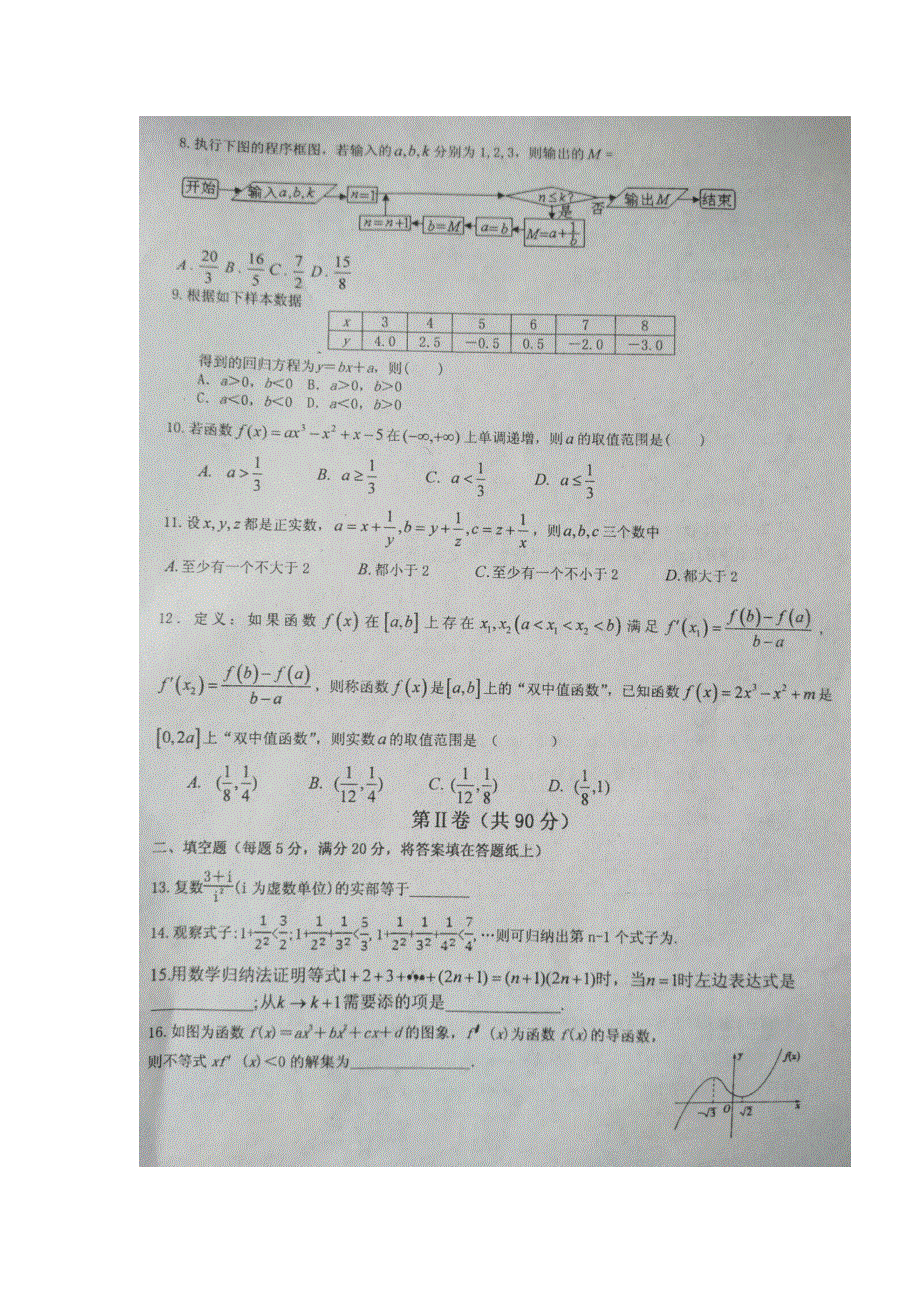 8.执行下图的程序框图，若输入的a,b,k分别为1,2,3，则输出的M =
开始 输入a,b,k n=1 n≤k? 否 输出M 结束
n=n+1 b=M a=b M=a+1/b 是
A. 20/3 B. 16/5 C. 7/2 D. 15/8
9.根据如下样本数据
x 3 4 5 6 7 8
y 4.0 2.5 －0.5 0.5 －2.0 －3.0
得到的回归方程为y＝bx＋a，则( )
A. a＞0，b＜0 B. a＞0，b＞0
C. a＜0，b＜0 D. a＜0，b＞0
10.若函数f(x)=ax³−x²+x−5在(−∞,+∞)上单调递增，则a的取值范围是( )
A. a>1/3 B. a≥1/3 C. a<1/3 D. a≤1/3
11.设x,y,z都是正实数，a=x+1/y,b=y+1/z,c=z+1/x，则a,b,c三个数中
A.至少有一个不大于2 B.都小于2 C.至少有一个不小于2 D.都大于2
12．定义：如果函数f(x)在[a,b]上存在x₁,x₂(a<x₁<x₂<b)满足f′(x₁)=(f(b)−f(a))/(b−a)，
f′(x₂)=(f(b)−f(a))/(b−a)，则称函数f(x)是[a,b]上的“双中值函数”，已知函数f(x)=2x³−x²+m是
[0,2a]上“双中值函数”，则实数a的取值范围是 （ ）
A. (1/8,1/4) B. (1/12,1/4) C. (1/12,1/8) D. (1/8,1)
第Ⅱ卷（共90分）
二、填空题（每题5分，满分20分，将答案填在答题纸上）
13.复数(3＋i)/i²(i为虚数单位)的实部等于________
14.观察式子:1+1/2²<3/2;1+1/2²+1/3²<5/3,1+1/2²+1/3²+1/4²<7/4,…则可归纳出第n-1个式子为.
15.用数学归纳法证明等式1+2+3+…+(2n+1)=(n+1)(2n+1)时，当n=1时左边表达式是
____________;从k→k+1需要添的项是______________.
16.如图为函数f(x)＝ax³＋bx²＋cx＋d的图象，f′(x)为函数f(x)的导函数，
则不等式xf′(x)<0的解集为______________.
y f(x)
−√3 O √2 x